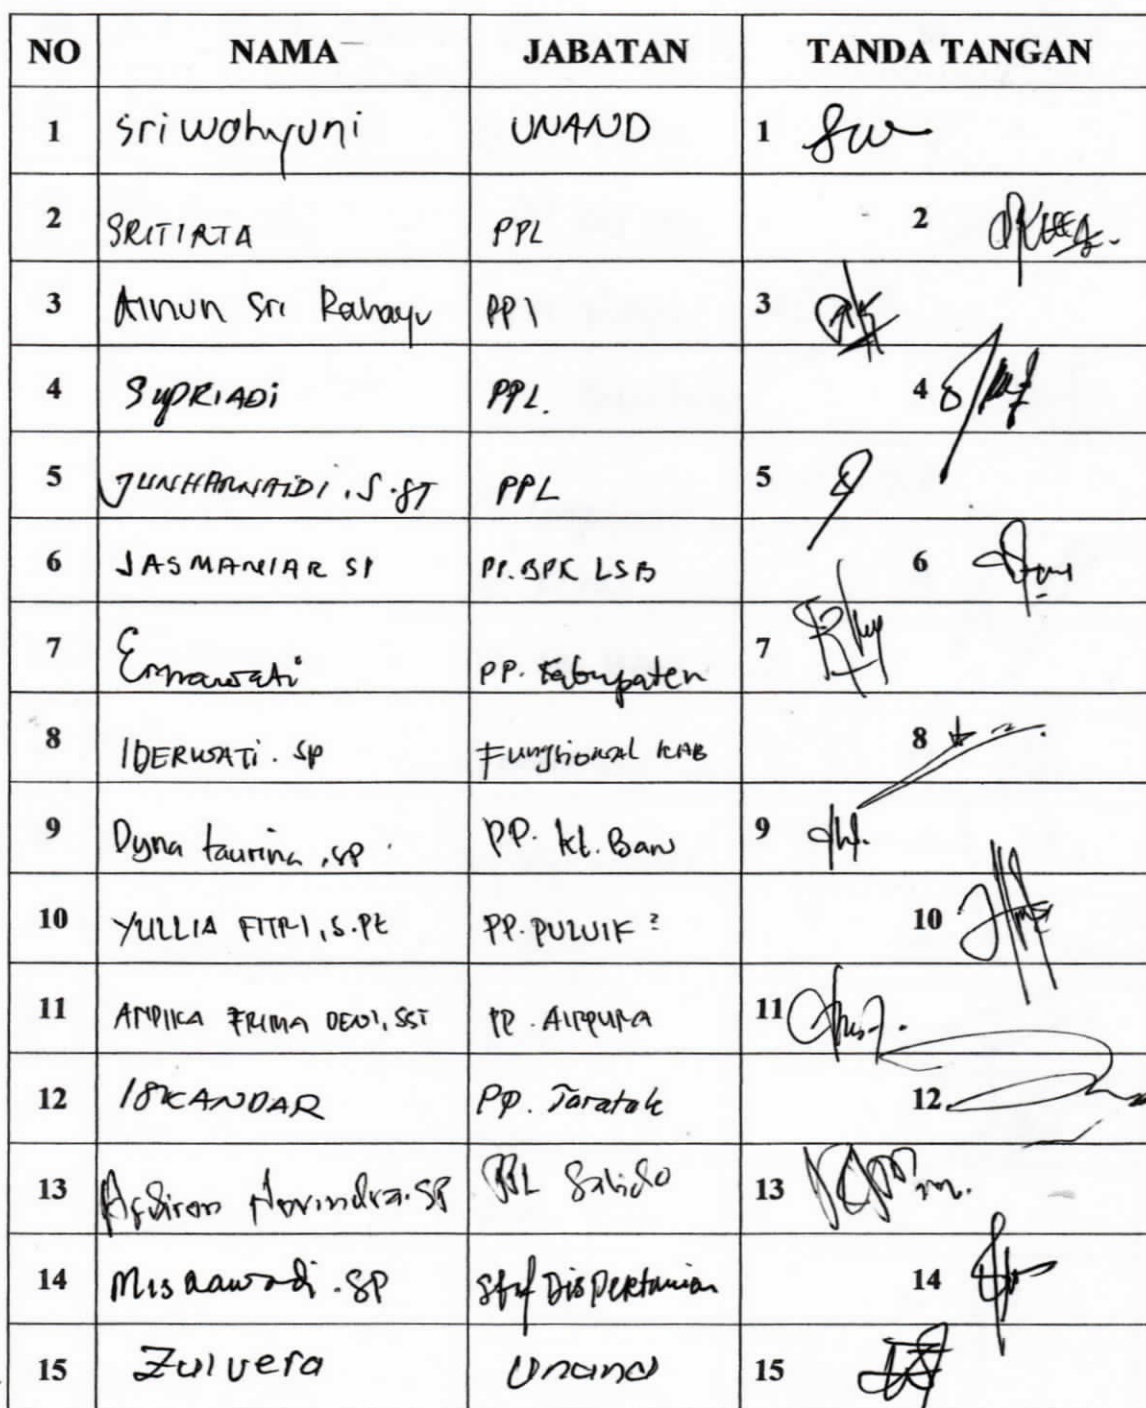 NO NAMA JABATAN TANDA TANGAN
1 Sri Wahyuni UNAND 1
2 SRITIRTA PPL 2
3 Ainun Sri Rahayu PPl 3
4 SUPRIADI PPL. 4
5 JUNHARNAIDI, S.ST PPL 5
6 JASMANIAR SP PP. BPK LSB 6
7 Ernawati PP. Kabupaten 7
8 IDERWATI. SP Fungsional KAB 8
9 Dyna taurina, SP PP. Kt. Baru 9
10 YULLIA FITRI, S.Pt PP. PULUIK ² 10
11 ANDIKA PRIMA DEWI, SST PP. AIRPURA 11
12 ISKANDAR PP. Taratak 12
13 Novindra. SP PPL Salido 13
14 SP Staf Dis Pertanian 14
15 Zulvera Unand 15